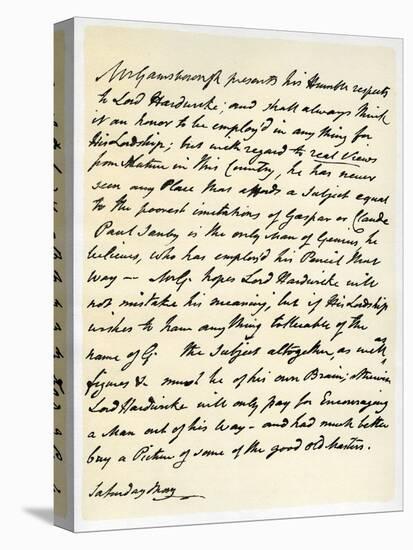 Mr Gainsborough presents his Humble respects
to Lord Hardwicke; and shall always think
it an honor to be employ'd in any thing for
His Lordship; but with regard to real Views
from Nature in this Country, he has never
seen any Place that affords a Subject equal
to the poorest imitations of Gaspar or Claude
Paul Sanby is the only Man of Genius, he
believes, who has employ'd his Pencil that
Way — Mr G. hopes Lord Hardwicke will
not mistake his meaning, but if His Lordship
wishes to have any thing tollerable of the
name of G. the Subject altogether, as well as
figures &c must be of his own Brain; otherwise
Lord Hardwicke will only pay for Encouraging
a Man out of his Way - and had much better
buy a Picture of some of the good Old Masters.
Saturday Morg